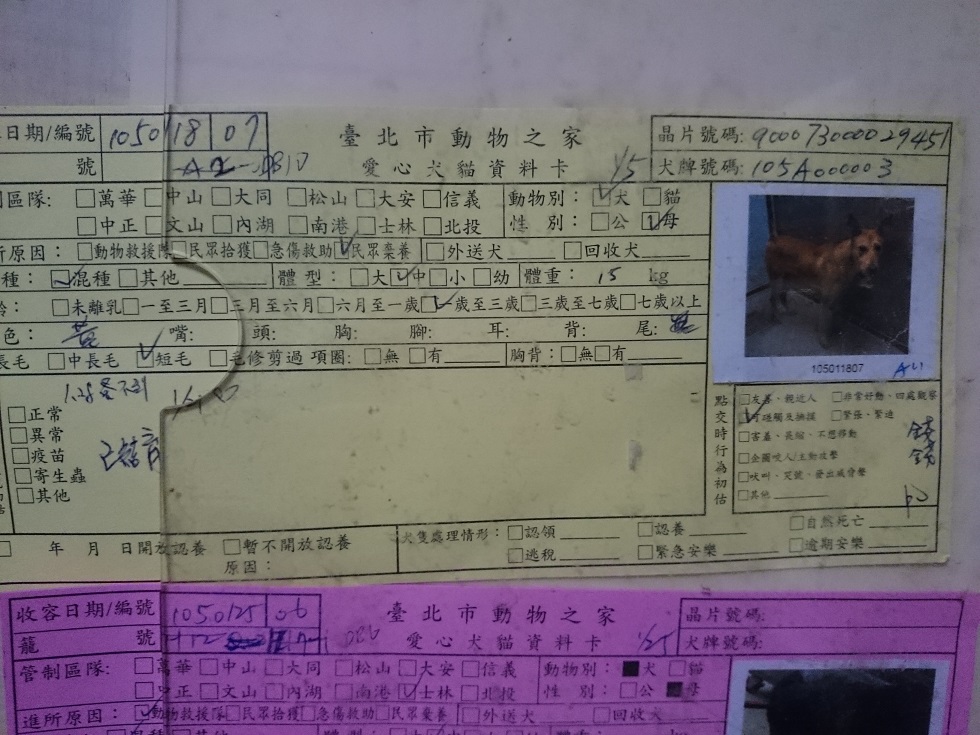 日期/編號 1050118 07 臺北市動物之家 晶片號碼: 900073000029451
號 愛心犬貓資料卡 1/5 犬牌號碼: 105A000003
區隊: □萬華 □中山 □大同 □松山 □大安 □信義 動物別: ☑犬 □貓
□中正 □文山 □內湖 □南港 □士林 □北投 性 別: □公 ☑母
所原因: □動物救援隊 □民眾拾獲 □急傷救助 ☑民眾棄養 □外送犬 □回收犬
種: ☑混種 □其他 體型: □大 ☑中 □小 □幼 體重: 15 kg
齡: □未離乳 □一至三月 □三月至六月 □六月至一歲 ☑一歲至三歲 □三歲至七歲 □七歲以上
色: 黃 嘴: 頭: 胸: 腳: 耳: 背: 尾:
長毛 □中長毛 ☑短毛 □毛修剪過 項圈: □無 □有 胸背: □無 □有
105011807
□正常
□異常
□疫苗
□寄生蟲
□其他
已結育
點交時行為初估
□友善、親近人 □非常好動、四處觀察
☑可碰觸及撫摸 □緊張、緊迫
□害羞、畏縮、不想移動
□企圖咬人/主動攻擊
□吠叫、哭號、發出威脅聲
□其他
□ 年 月 日開放認養 □暫不開放認養
原因:
犬隻處理情形: □認領 □認養 □自然死亡
□逃脫 □緊急安樂 □逾期安樂
收容日期/編號 1050125 06 臺北市動物之家 晶片號碼:
籠 號 愛心犬貓資料卡 1/25 犬牌號碼:
管制區隊: □萬華 □中山 □大同 □松山 □大安 □信義 動物別: ■犬 □貓
□中正 □文山 □內湖 □南港 ☑士林 □北投 性 別: □公 ■母
進所原因: ☑動物救援隊 □民眾拾獲 □急傷救助 □民眾棄養 □外送犬 □回收犬